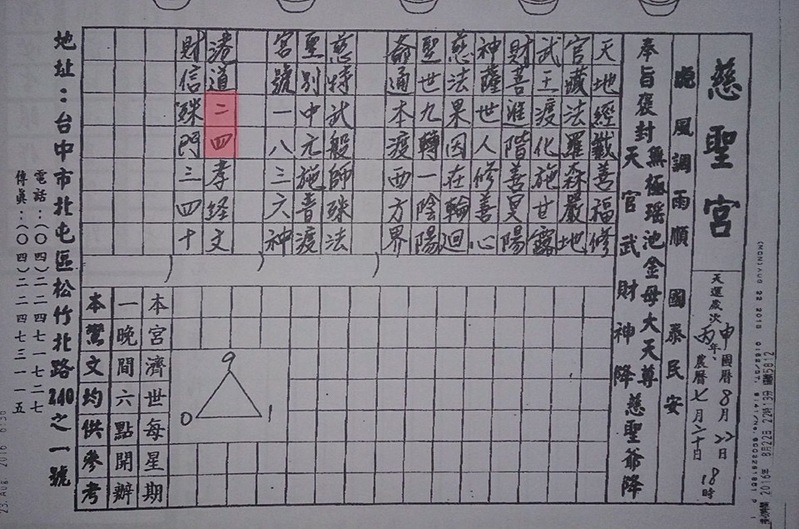 慈聖宮
天運歲次丙申年、國曆8月22日18時
農曆七月二十日
風調雨順 國泰民安
奉旨褒封無極瑤池金母大天尊
天官武財神降 慈聖爺降
天地經懺善福修
官藏法羅森嚴地
武王渡化施甘露
財善進階善昊陽
神薩世人修善心
慈法果因在輪迴
聖世九轉一陰陽
本渡西方界
慈特武般師殊法
聖別中元施普渡
宮號一八三六神
港道二四孝經文
財信殊門三四十
9
0
1
本宮濟世每星期
一晚間六點開辦
本鸞文均供參考
地址：台中市北屯區松竹北路240之一號
電話：(〇四)二二四七一七二七
傳真：(〇四)二二四七三一一五
2016年 8月22日 22時13分
23. Aug. 2016 6:36